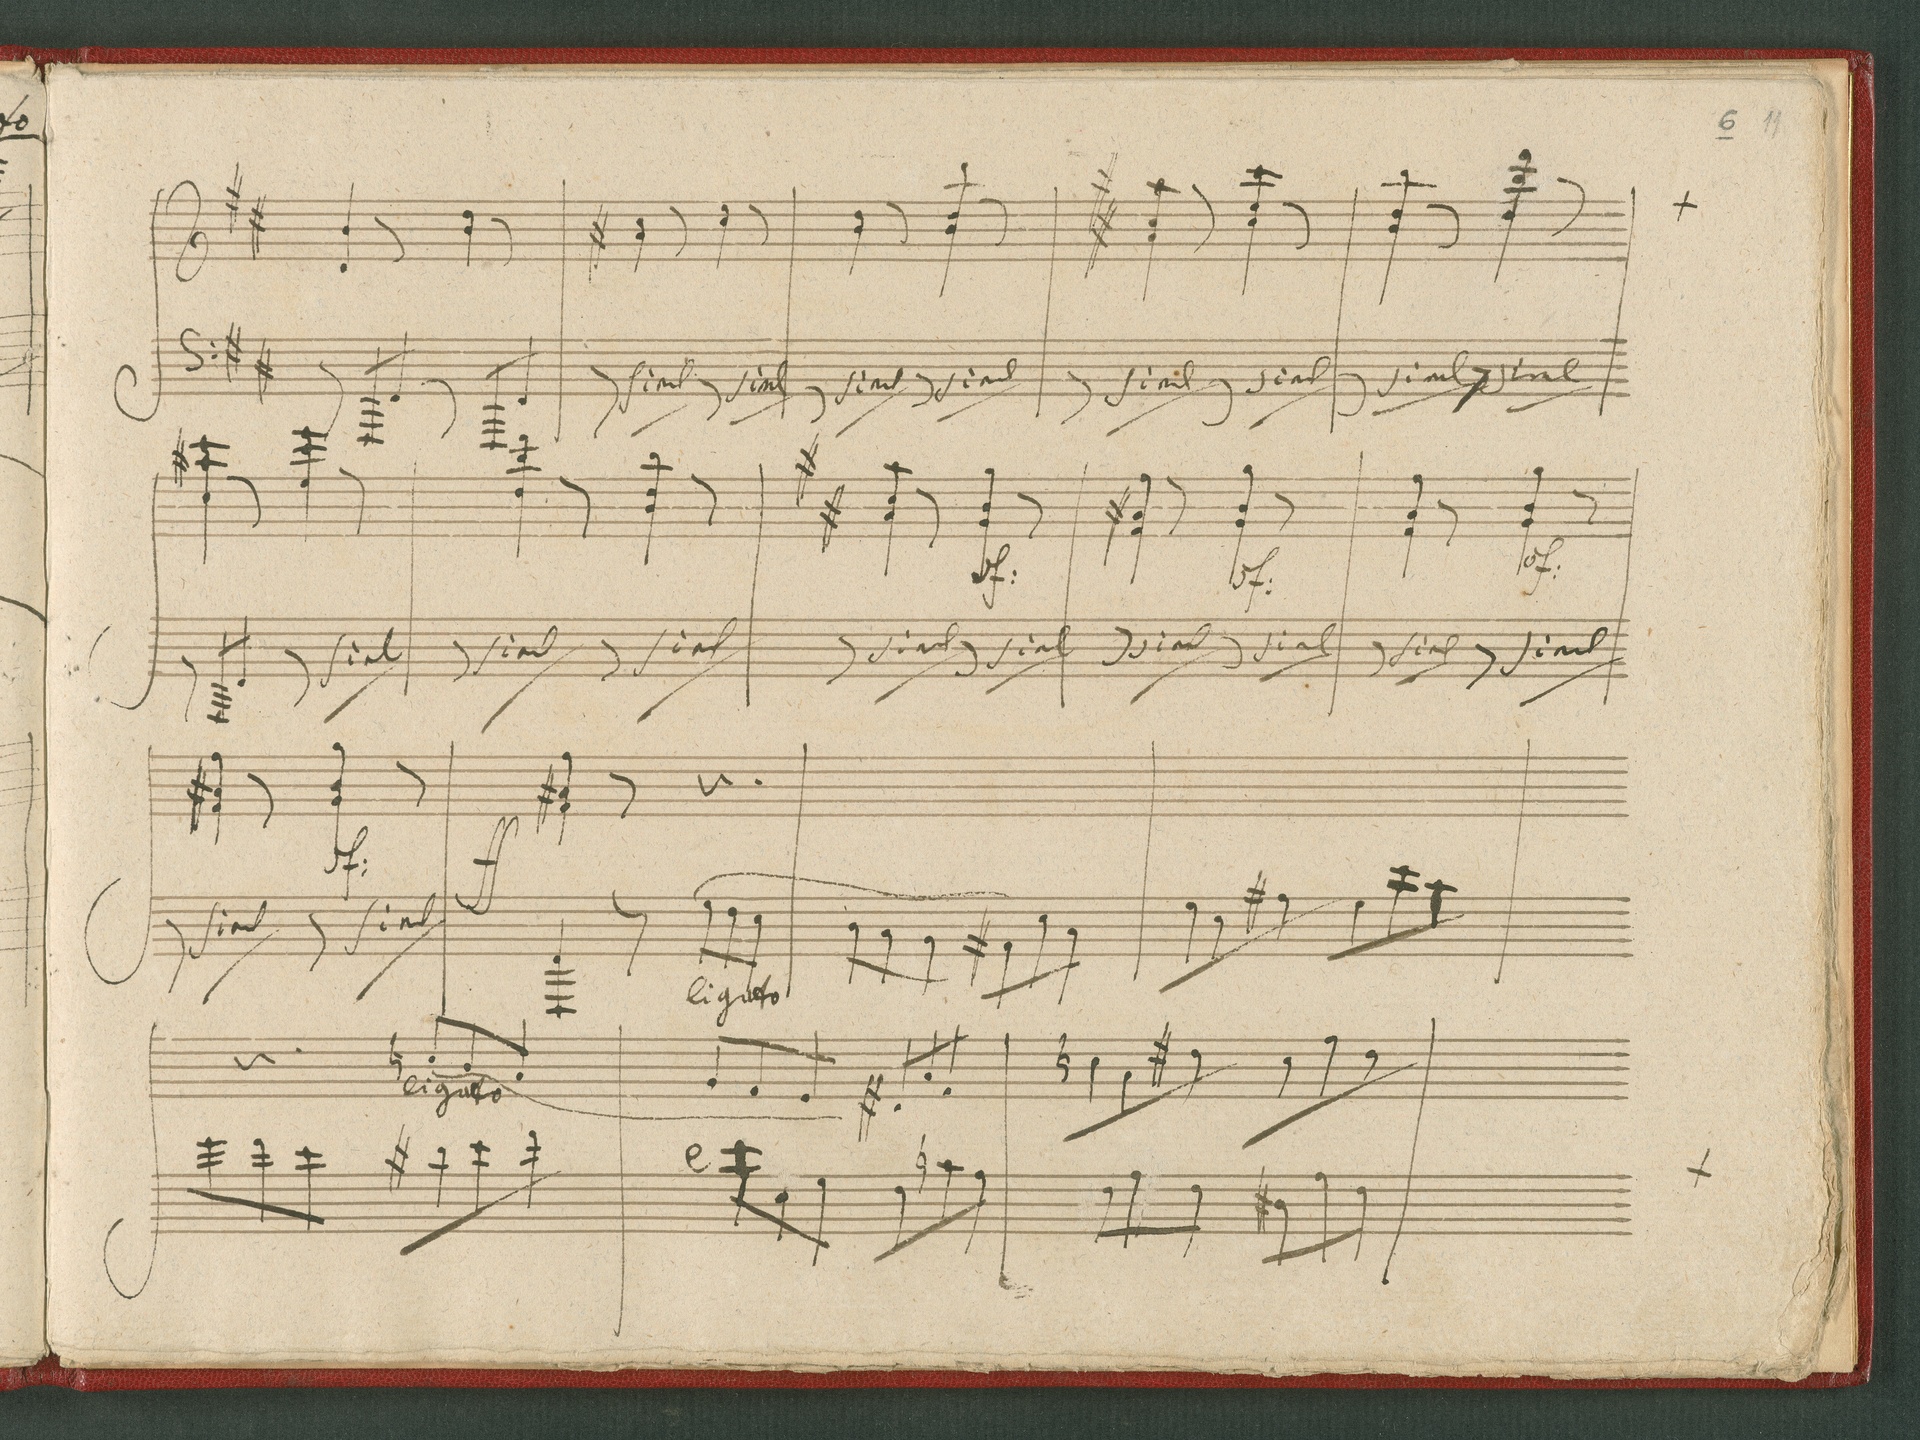 6 11
simil simil simil simil simil simil simil simil
sf: sf: sf:
simil simil simil simil simil simil simil simil simil
sf: ff
simil simil
ligato
ligato
e